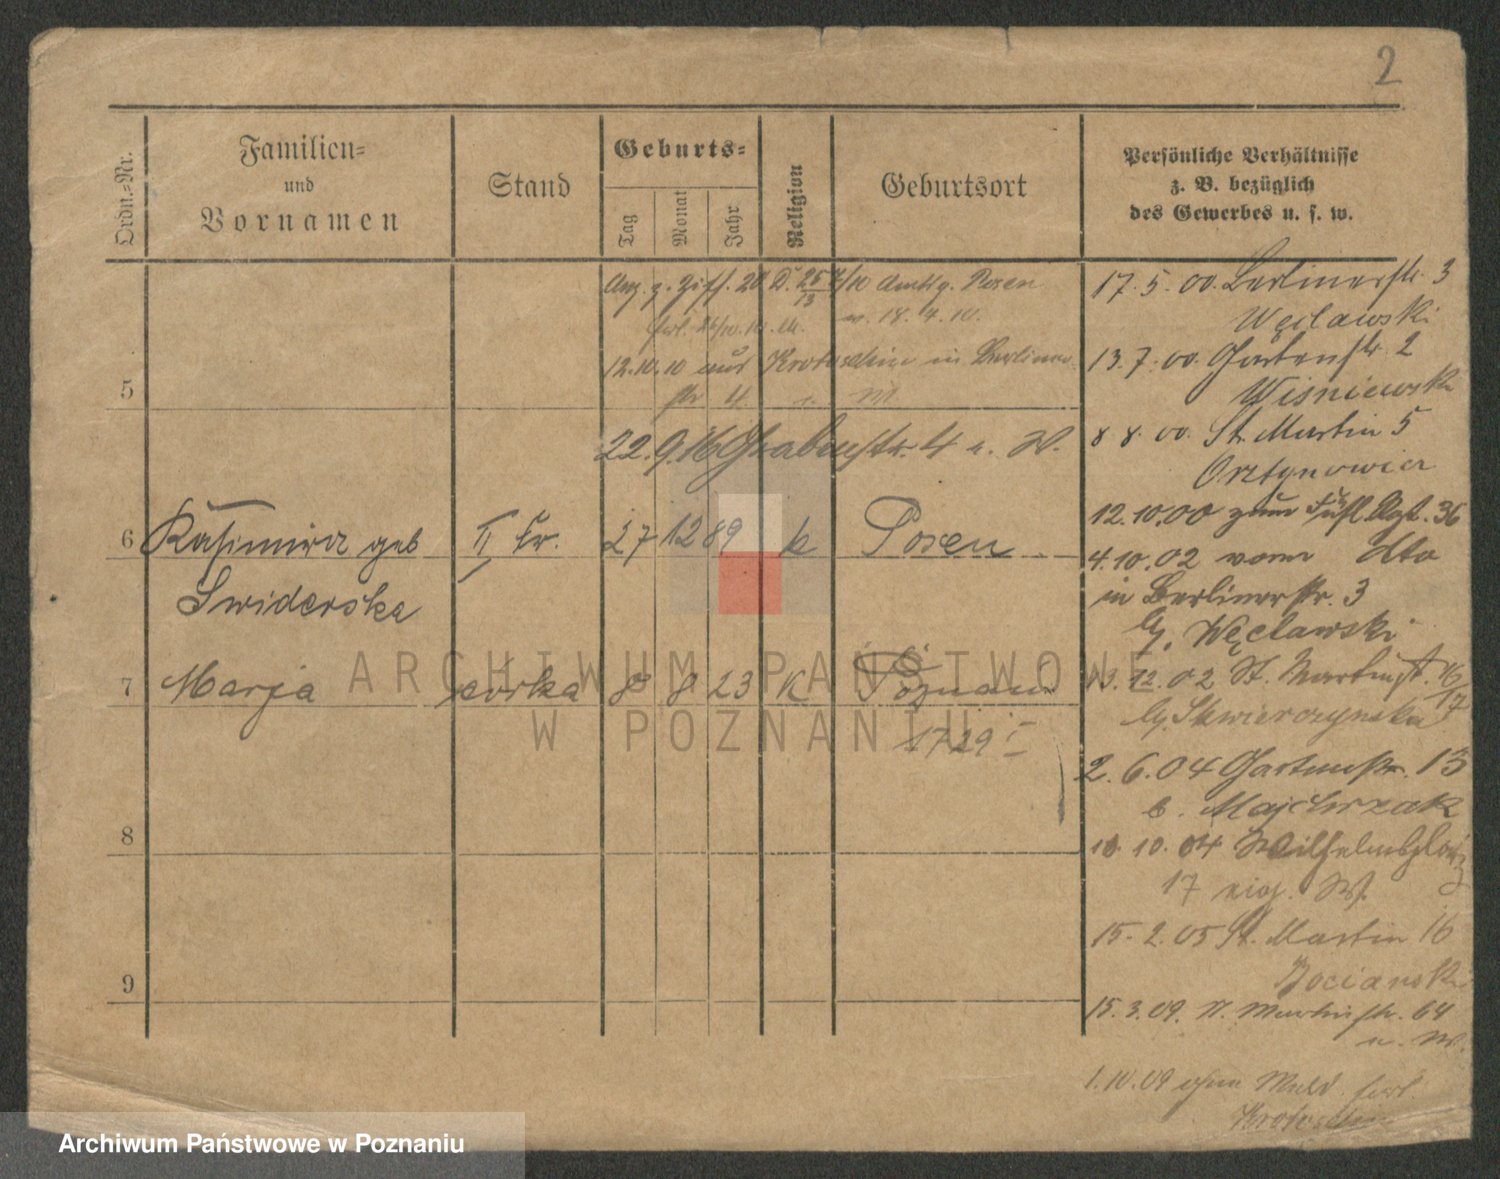 2
Ordn.-Nr.
Familien-
und
Vornamen
Stand
Geburts-
Tag
Monat
Jahr
Religion
Geburtsort
Persönliche Verhältnisse
z. B. bezüglich
des Gewerbes u. s. w.
Anz. z. Ziff. 20 D. 10 Amtsg. Posen
18. 4. 10.
5
12.10.10 aus Krotoschin in Berliner
str 4 u. W.
22.9.16 Grabenstr. 4 u. W.
6 Kasimira geb II Fr. 27 12 89 k Posen
Swiderska
7 Marja córka 8 8 23 K Poznań
1729 I
8
9
17. 5. 00. Berlinerstr. 3
Węclawski
13. 7. 00. Gartenstr. 2
Wisniewski
8. 8. 00. St. Martin 5
12. 10. 00 zum Füsl. Rgt. 36
4. 10. 02 vom dto
in Berlinerstr. 3
b. Węclawski
12. 02 St. Martinst. 16/17
b. Skwierzynska
2. 6. 04 Gartenstr. 13
b. Majchrzak
10. 10. 04 Wilhelmsplatz
17 eig. W.
15. 2. 05 St. Martin 16
Bociański
15. 3. 09. St. Martinstr. 64
u. W.
1. 10. 09 ohne Meld. verl.
Krotoschin
ARCHIWUM PAŃSTWOWE
W POZNANIU
Archiwum Państwowe w Poznaniu